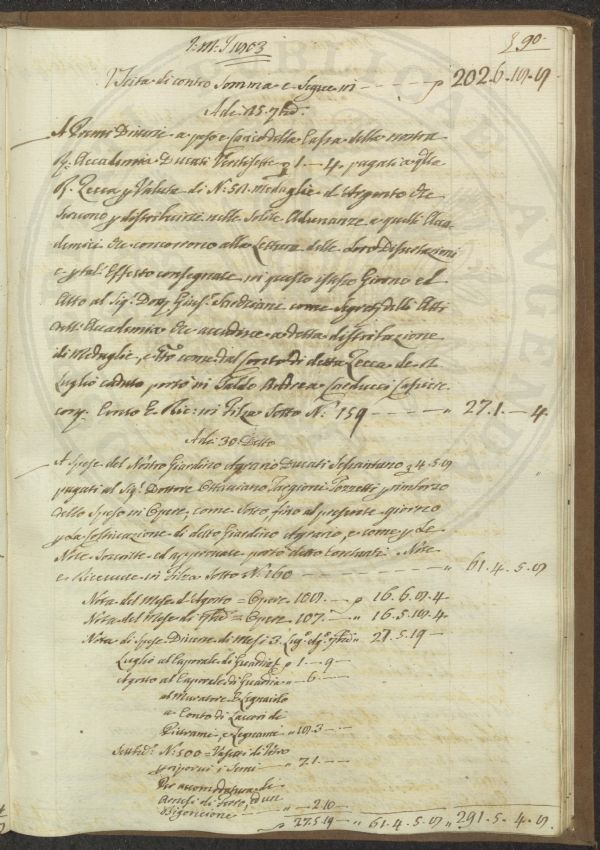 90
Uscita di contro Somma e Segue in - - - - p 202.6.
Adi 15. 7bre
A Premi Diversi a peso e carico della Cassa della nostra
Rl. Accademia Ducati Ventisette 1 - 4. pagati a qta
Rl. Zecca p Valuta di N. medaglie d'Argento che
servono p distribuirsi nelle Solite Adunanze a quelli Acca-
demici che concorrono alla Lettura delle Loro Dissertazioni
e p tal' Effetto consegnate in questo istesso Giorno el
Atto al Sig. Giusp. Sarchiani come Segret. delli Atti
dell'Accademia che accudisce a detta distribuzione
di Medaglie, e come dal Conto di detta Zecca de
Luglio caduto portò in Saldo Andrea Carducci Cassiere
come E. Ric. in Filza Sotto N. 159 - - - - - " 27.1. - 4
Adi 30. Detto
A Spese del Nostro Giardino Agrario Ducati Sessantuno 4.5.
pagati al Sig. Dottore Ottaviano Targioni Tozzetti p rimborzo
delle Spese in Opere, come Sotto, fino al presente giorno
p la Coltivazione di detto Giardino Agrario, e come p Le
Note Soscritte ed approvate portò detto Contanti. Note
e Ricevute in Filza Sotto N. 160 - - - - - " 61.4.5.
Nota del Mese d'Agosto = Opere p 16.6. .4
Nota del Mese di 7bre = Opere 107. - " 16.5. .4
Nota di Spese Diverse di Mesi 3. Lug. Ag. 7bre " 27.5.19 -
Luglio al Caporale di Guardia p 1 - 9 -
Agosto al Caporale di Guardia " - 6 -
al Muratore E Legnaiolo
a Conto di Lavori di
Pietrami, e Legnami " .3 -
Settbre N. 500 = Vasetti di Vetro
p riporvi i Semi - " 7.1 -
Per accomodatura di
Arnesi di Ferro, ed un
Bigoncione " - 2.10 -
p 27.5.19 - " 61.4.5. " 291.5.4.